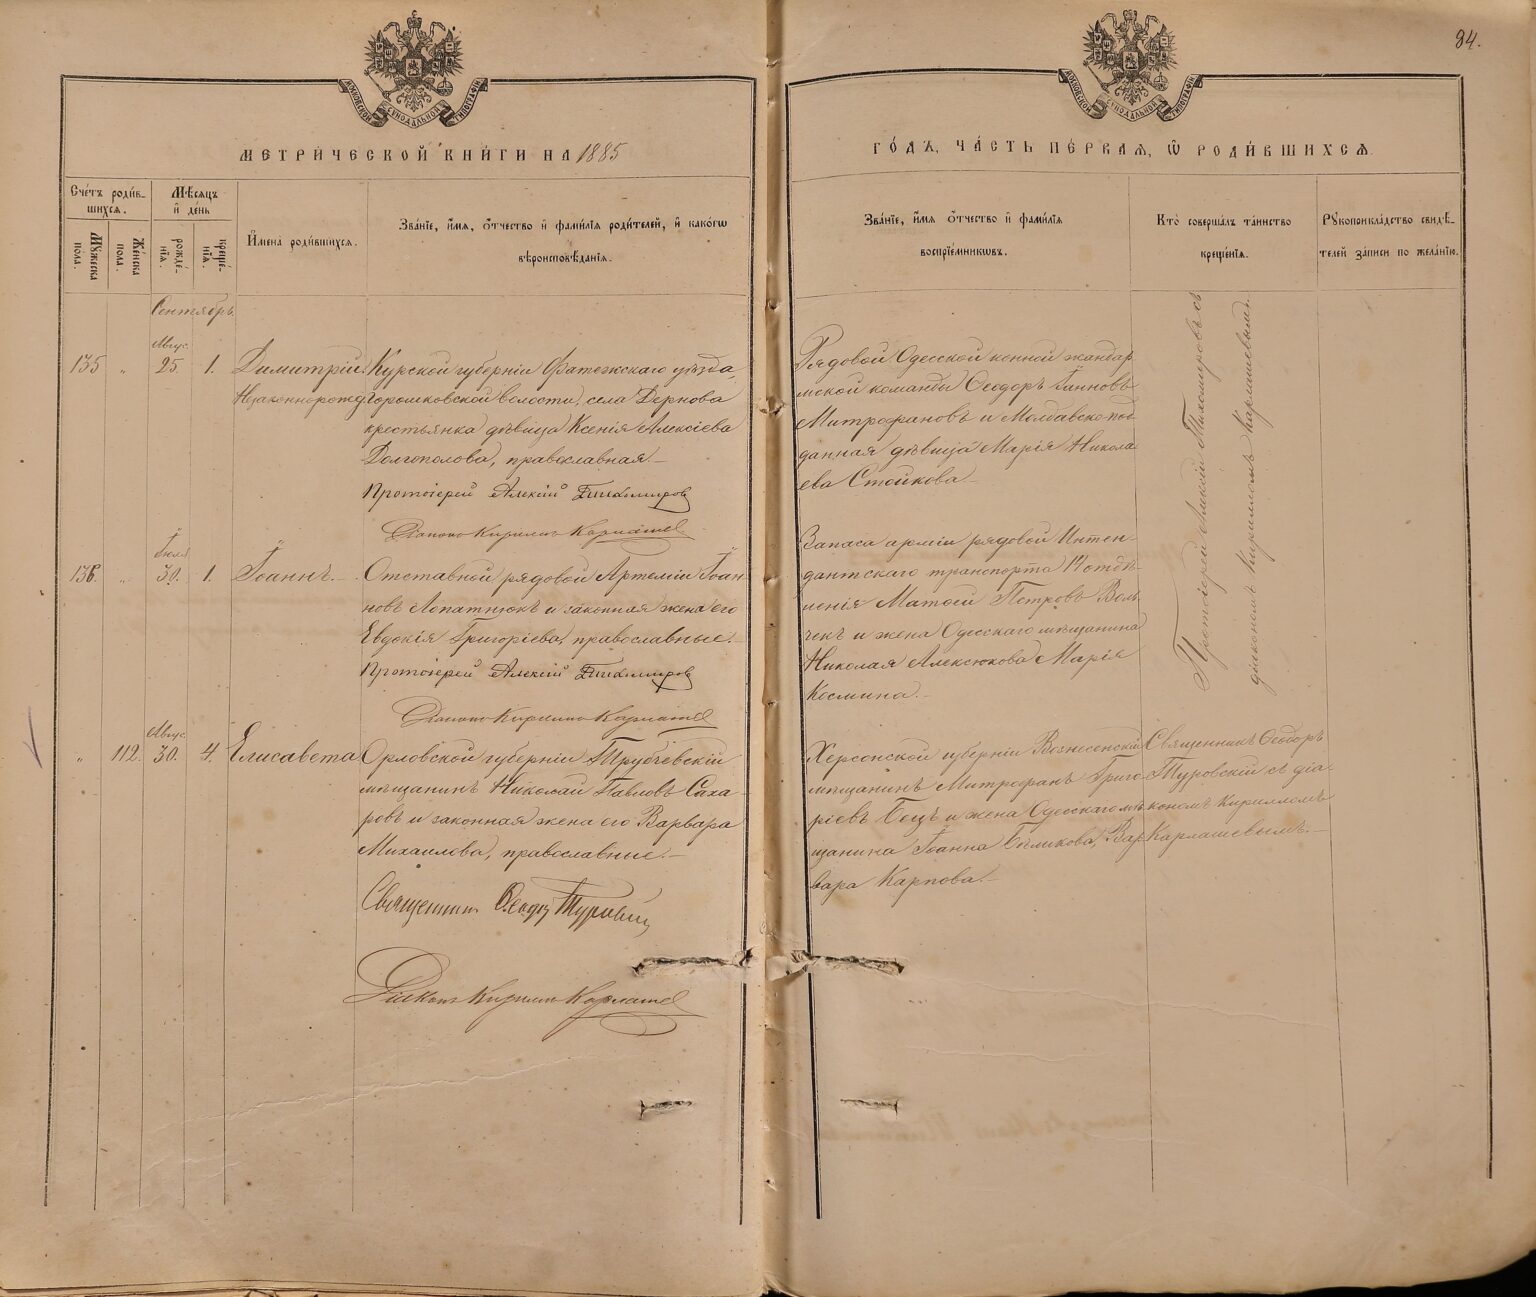 84.
МОСКОВСКОЙ СѴНОДАЛЬНОЙ ТИПОГРАФІИ
МОСКОВСКОЙ СѴНОДАЛЬНОЙ ТИПОГРАФІИ
МЕТРИ́ЧЕСКОЙ КНИ́ГИ НА 1885
ГО́ДЪ, ЧА́СТЬ ПЕ́РВАѦ, Ѽ РОДИ́ВШИХСѦ.
Сче́тъ роди́в-
шихсѧ.
Мꙋ́жеска пола.
Же́нска пола.
Мѣ́сѧцъ
и҆ де́нь
рожде́-
нїѧ.
креще́-
нїѧ.
И҆мена̀ роди́вшихсѧ.
Зва́нїе, и҆́мѧ, ѻ҆́тчество и҆ фами́лїѧ роди́телей, и҆ како́гѡ
вѣроисповѣ́данїѧ.
Зва́нїе, и҆́мѧ ѻ҆́тчество и҆ фами́лїѧ
воспрїе́мникѡвъ.
Кто̀ соверша́лъ та́инство
креще́нїѧ.
Рꙋкоприкла́дство свидѣ́-
телей за́писи по жела́нїю.
Сентябрь.
135 " Авгус. 25. 1. Димитрій.
Незаконнорожд
Курской губерніи Фатежскаго уѣзда,
Горошковской волости, села Дернова
крестьянка дѣвица Ксенія Алексіева
Долгополова, православная.—
Протоіерей Алексій Тихомиров
Діаконъ Кириллъ Карлашев
Рядовой Одесской конной жандар
мской команды Ѳеодоръ Іоанновъ
Митрофановъ и Молдавскопод
данная дѣвица Марія Никола
ева Стойкова.—
136. " Іюля 30. 1. Іоаннъ.—
Отставной рядовой Артемій Іоан
новъ Лопатнюкъ и законная жена его
Евдокія Григоріева, православные.—
Протоіерей Алексій Тихомиров
Діаконъ Кириллъ Карлашев
Запаса арміи рядовой Интен-
дантскаго транспорта 14 отдѣ
ленія Матѳей Петровъ Воль
чекъ и жена Одесскаго мѣщанина
Николая Алексюкова Марія
Космина.—
Протоіерей Алексій Тихомировъ съ
діакономъ Кирилломъ Карлашевымъ.
" 112. Авгус. 30. 4. Елисавета
Орловской губерніи Трубчевскій
мѣщанинъ Николай Павловъ Саха-
ровъ и законная жена его Варвара
Михаилова, православные.—
Священник Ѳеодор Туровский
Діаконъ Кириллъ Карлашев
Херсонской губерніи Вознесенскій
мѣщанинъ Митрофанъ Григо
ріевъ Бецъ и жена Одесскаго мѣ
щанина Іоанна Бѣликова, Вар
вара Карпова.—
Священникъ Ѳеодоръ
Туровскій съ діа-
кономъ Кирилломъ
Карлашевымъ.—